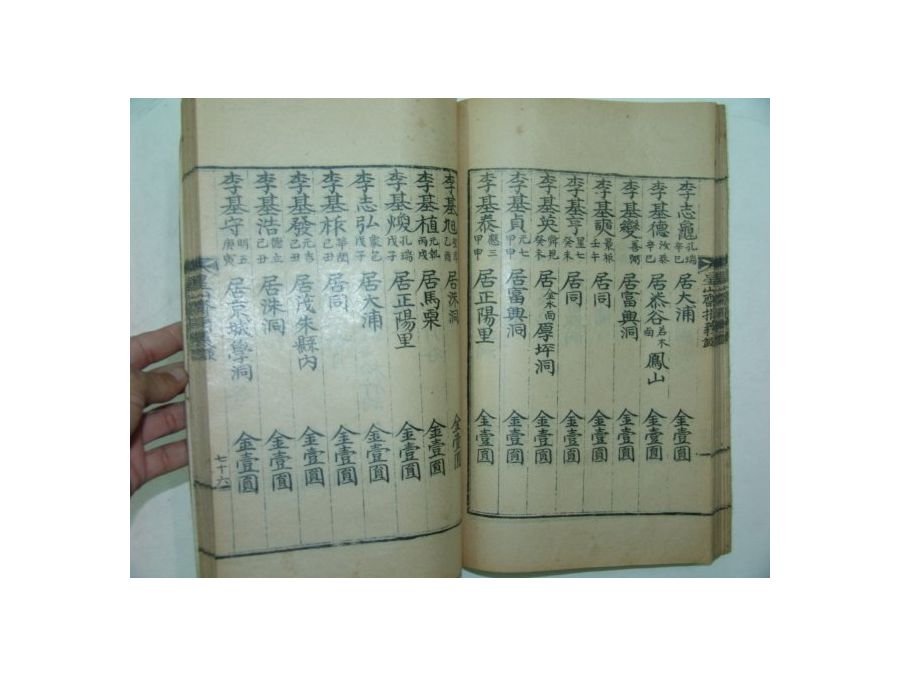 李志龍 孔瑞 辛巳 居大浦 金壹圓
李基德 汝泰 辛巳 居泰谷 若木面 鳳山 金壹圓
李基燮 喜弼 居富興洞 金壹圓
李基 景振 壬午 居同 金壹圓
李基亨 星七 癸未 居同 金壹圓
李基英 癸未 居 金水面 厚坪洞 金壹圓
李基貞 元七 甲申 居富興洞 金壹圓
李基泰 應三 甲申 居正陽里 金壹圓
李基旭 乙酉 居洙洞 金壹圓
李基植 丙戌 居馬栗 金壹圓
李基煥 孔瑞 戊子 居正陽里 金壹圓
李志弘 戊子 居大浦 金壹圓
李基 己丑 居同 金壹圓
李基發 元吉 己丑 居茂朱縣內 金壹圓
李基浩 己丑 居洙洞 金壹圓
李基守 明五 庚寅 居京城學洞 金壹圓
七十六